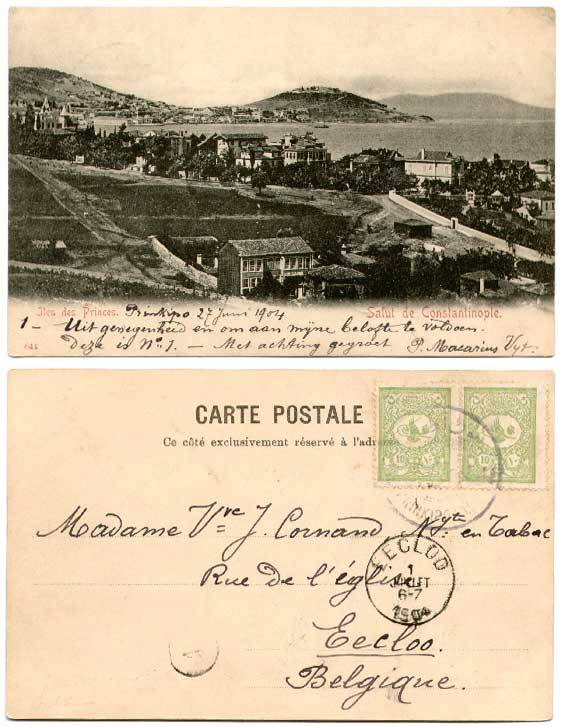 Iles des Princes. Prinkipo 27 Juni 1904 Salut de Constantinople.
1 - Uit genegenheid en om aan mijne belofte te voldoen.
644 Deze is No. 1. - Met achting gegroet P. Macarius Vyt.
CARTE POSTALE
Ce côté exclusivement réservé à l'adresse
10 10
PRINKIPO
Madame Vve J. Cornand Nyte en Tabac
Rue de l'église
Eecloo.
Belgique.
EECLOO
1
JUILLET
6-7
1904